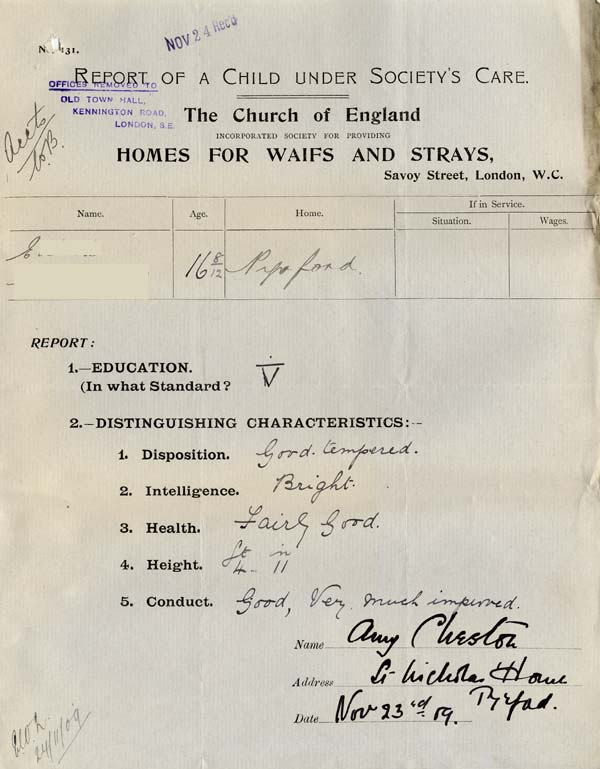 NOV 24 Recd
No. 131.
REPORT OF A CHILD UNDER SOCIETY'S CARE.
OFFICES REMOVED TO
OLD TOWN HALL,
KENNINGTON ROAD,
LONDON, S.E.
The Church of England
INCORPORATED SOCIETY FOR PROVIDING
HOMES FOR WAIFS AND STRAYS,
Savoy Street, London, W.C.
Name. Age. Home. If in Service.
Situation. Wages.
E
16 8/12 Pyrford.
REPORT:
1.—EDUCATION.
(In what Standard? V
2.—DISTINGUISHING CHARACTERISTICS:—
1. Disposition. Good. tempered.
2. Intelligence. Bright.
3. Health. Fairly Good.
4. Height. ft in
4 - 11
5. Conduct. Good, Very much improved.
Name Amy Cheston
Address St Nicholas Home
Pyrford.
Date Nov 23rd 09.
24/11/09